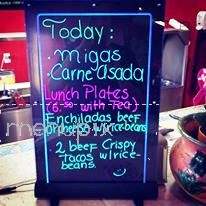 Today:
. migas
. Carne Asada
Lunch Plates
with Tea)
Enchiladas beef
rice-beans
2 beef Crispy
tacos w/rice-
beans.